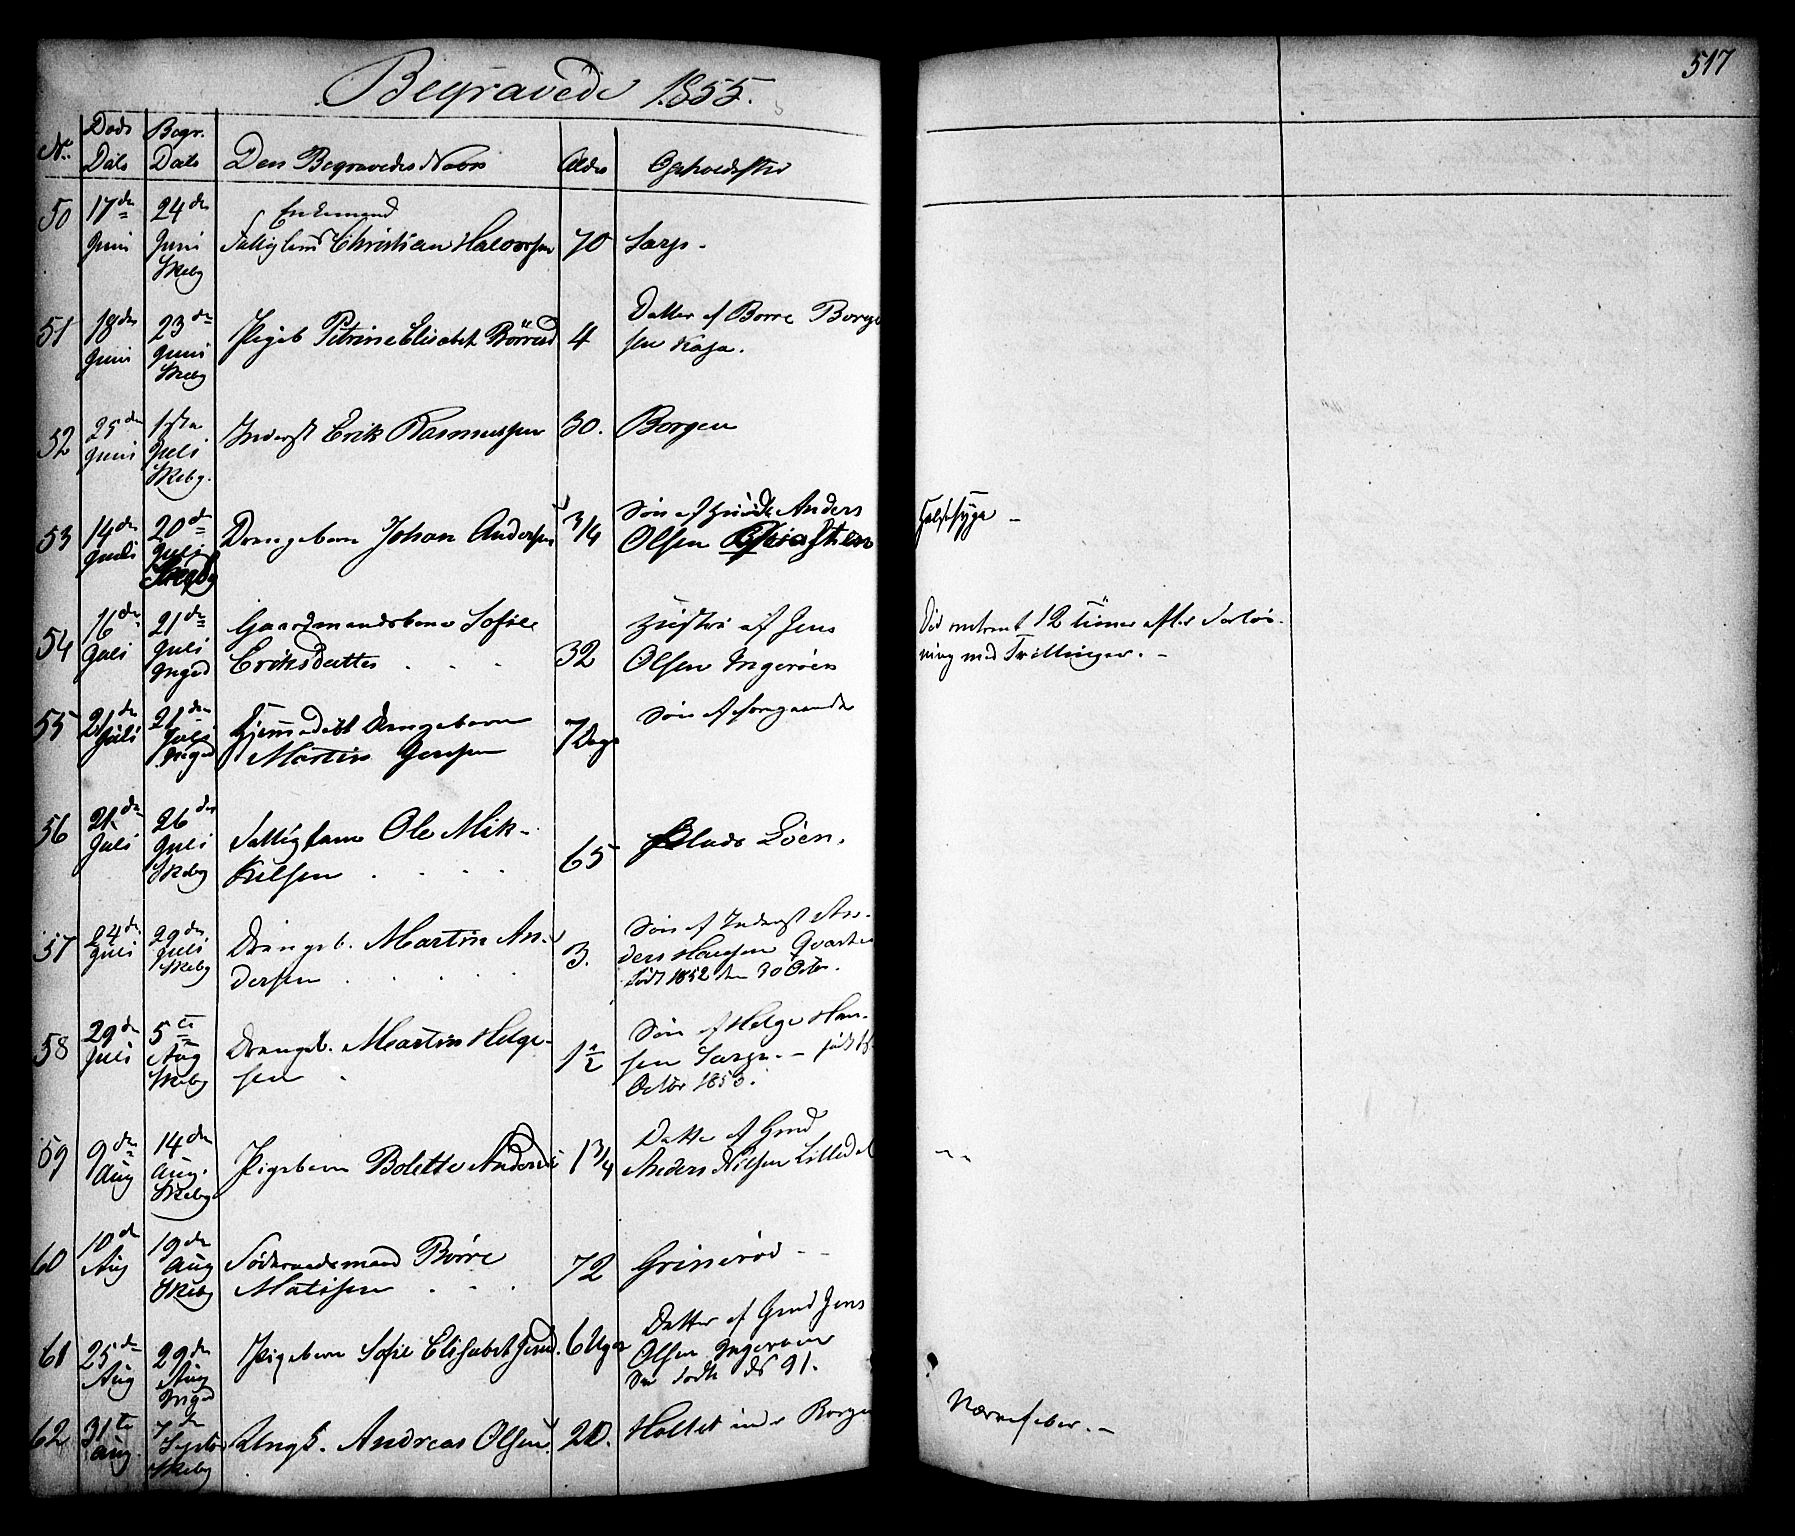 517
Begravede 1855.
No. Døds Dato Begr. Dato Den Begravedes Navn Alder Opholdsted
50 17de Juni 24de Juni Skeby Enkemand
Fattiglem Christian Halvorsen 70 Sarp.
51 18de Juni 23de Juni Skeby Pigeb Petrine Elisabet Börresd 4 Datter af Borre Borge
sen
52 25de Juni 1ste Juli Skebg. Inderst Erik Rasmussen 30. Borgen
53 14de Juli 20de Juli Drengebarn Johan Andersen 3/4 Søn af Anders
Olsen
Halssyge -
54 16de Juli 21de Juli Inged Gaardmandskone Sofie
Eriksdatter . . . 32 Hustru af Jens
Olsen Ingeröen
Död omtrent 12 Timer efter Forløs-
ning med Tvillinger. -
55 21de Juli 21de Juli Inged Hjemmedöbt Drengebarn
Martin Jensen 7 Dage Søn af foregaaende
56 21de Juli 26de Juli Skeby Fattiglem Ole Mik-
kelsen . . . . 65 Löen.
57 24de Juli 29de Juli Skeby Drengeb. Martin An-
dersen . . . . 3. Søn af Inderst An-
ders Hansen
født 1852 den 30 Octbr.
58 29de Juli 5te Aug Skeby Drengeb. Martin Helge-
sen . 1 1/2 Søn af Helge Han-
sen Sarp. - født
Octbr 1853.
59 9de Aug 14de Aug. Skeby Pigebarn Bolette Andersd 1 3/4 Datter af Grmd
Anders Nilsen Lilledal
60 10de Aug 19de Aug Skeby Föderaadsmand Börre
Matisen . . . 72 Grimeröd - -
61 25de Aug 29de Aug Inged Pigebarn Sofie Elisabet Jensd. 6 Uger Datter af Grmd Jens
Olsen Ingeröen
Se Födte No 91.
62 31te Aug 7de Septbr Skeby Ungk. Andreas Olsen 20. Holtet under Borgen
Nervefeber. -